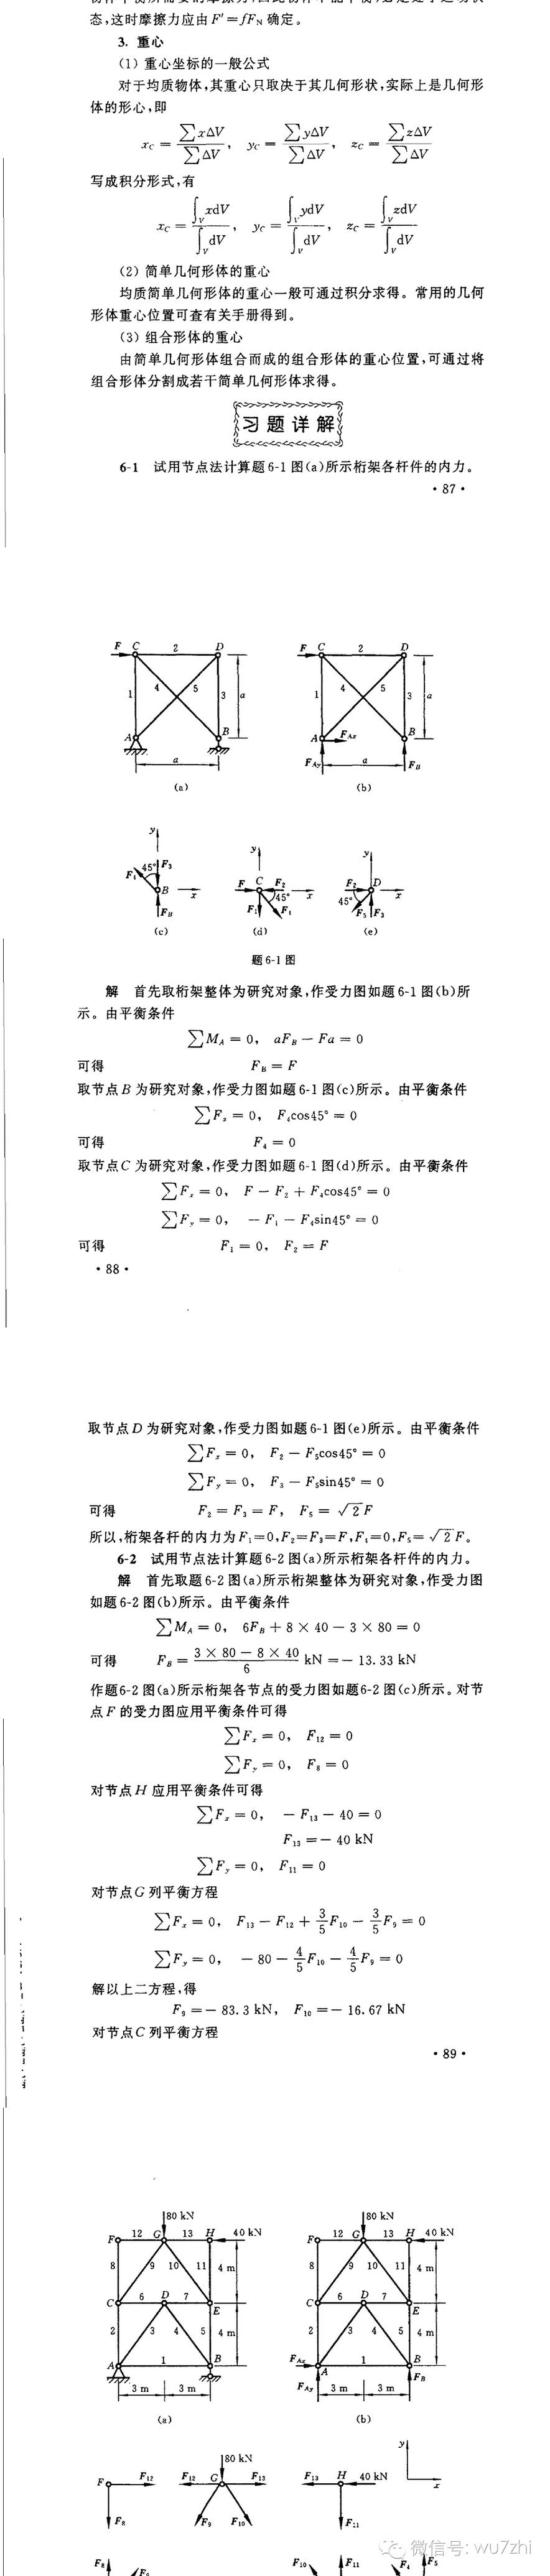 态,这时摩擦力应由 F′=fFN 确定。
3. 重心
(1) 重心坐标的一般公式
对于均质物体,其重心只取决于其几何形状,实际上是几何形
体的形心,即
xC = ∑xΔV / ∑ΔV, yC = ∑yΔV / ∑ΔV, zC = ∑zΔV / ∑ΔV
写成积分形式,有
xC = ∫V xdV / ∫V dV, yC = ∫V ydV / ∫V dV, zC = ∫V zdV / ∫V dV
(2) 简单几何形体的重心
均质简单几何形体的重心一般可通过积分求得。常用的几何
形体重心位置可查有关手册得到。
(3) 组合形体的重心
由简单几何形体组合而成的组合形体的重心位置,可通过将
组合形体分割成若干简单几何形体求得。
习题详解
6-1 试用节点法计算题 6-1 图(a)所示桁架各杆件的内力。
· 87 ·
F C 2 D
1 4 5 3 a
A B
a
(a)
F C 2 D
1 4 5 3 a
A FAx B
FAy a FB
(b)
y
45° F3
B x
FB
(c)
y
F C F2
45° x
(d)
y
F2 D
45° x
F5 F3
(e)
题 6-1 图
解 首先取桁架整体为研究对象,作受力图如题 6-1 图(b)所
示。由平衡条件
∑MA = 0, aFB − Fa = 0
可得 FB = F
取节点 B 为研究对象,作受力图如题 6-1 图(c)所示。由平衡条件
∑Fx = 0, F4cos45° = 0
可得 F4 = 0
取节点 C 为研究对象,作受力图如题 6-1 图(d)所示。由平衡条件
∑Fx = 0, F − F2 + F4cos45° = 0
∑Fy = 0, − F1 − F4sin45° = 0
可得 F1 = 0, F2 = F
· 88 ·
取节点 D 为研究对象,作受力图如题 6-1 图(e)所示。由平衡条件
∑Fx = 0, F2 − F5cos45° = 0
∑Fy = 0, F3 − F5sin45° = 0
可得 F2 = F3 = F, F5 = √2 F
所以,桁架各杆的内力为 F1=0,F2=F3=F,F4=0,F5=√2 F。
6-2 试用节点法计算题 6-2 图(a)所示桁架各杆件的内力。
解 首先取题 6-2 图(a)所示桁架整体为研究对象,作受力图
如题 6-2 图(b)所示。由平衡条件
∑MA = 0, 6FB + 8 × 40 − 3 × 80 = 0
可得 FB = (3 × 80 − 8 × 40) / 6 kN = − 13.33 kN
作题 6-2 图(a)所示桁架各节点的受力图如题 6-2 图(c)所示。对节
点 F 的受力图应用平衡条件可得
∑Fx = 0, F12 = 0
∑Fy = 0, F8 = 0
对节点 H 应用平衡条件可得
∑Fx = 0, − F13 − 40 = 0
F13 = − 40 kN
∑Fy = 0, F11 = 0
对节点 G 列平衡方程
∑Fx = 0, F13 − F12 + 3/5 F10 − 3/5 F9 = 0
∑Fy = 0, − 80 − 4/5 F10 − 4/5 F9 = 0
解以上二方程,得
F9 = − 83.3 kN, F10 = − 16.67 kN
对节点 C 列平衡方程
· 89 ·
80 kN
F 12 G 13 H 40 kN
8 9 10 11 4 m
C 6 D 7 E
2 3 4 5 4 m
A 1 B
3 m 3 m
(a)
80 kN
F 12 G 13 H 40 kN
8 9 10 11 4 m
C 6 D 7 E
2 3 4 5 4 m
FAx A 1 B
FAy 3 m 3 m FB
(b)
F F12
F8
80 kN
F12 G F13
F9 F10
F13 H 40 kN
F11
y
x
F8 F9
F10 F11
F4 F5
微信号: wu7zhi